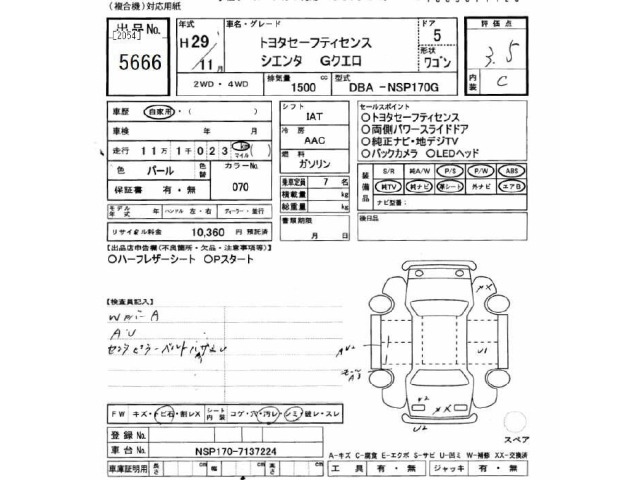 (複合機)対応用紙
出品No.
[2054]
5666
年式
H29
11月
車名・グレード
トヨタセーフティセンス
シエンタ Gクエロ
ドア
5
形状
ワゴン
2WD・4WD
排気量
1500 cc
型式
DBA-NSP170G
評価点
3.5
内装
C
車歴
自家用・( )
車検
年 月
走行
11万1千023 km マイル ( )
色
パール
色替
カラーNo.
070
保証書
有・無
モデル年式
年
ハンドル
左・右
ディーラー・並行
リサイクル料金
10,360 円
預託済
シフト
IAT
冷房
AAC
燃料
ガソリン
乗車定員
7 名
積載量
kg
総重量
kg
書類期限
月 日
セールスポイント
○トヨタセーフティセンス
○両側パワースライドドア
○純正ナビ・地デジTV
○バックカメラ ○LEDヘッド
装備品
S/R 純A/W P/S P/W ABS
純TV 純ナビ 革シート 外ナビ エアB
ナビ型番:
後日品
【出品店申告欄(不良箇所・欠品・注意事項等)】
○ハーフレザーシート ○Pスタート
【検査員記入】
AU
U1
U2
FW
キズ・トビ石・割レX
シート内装
コゲ・穴・汚レ・シミ・破レ・スレ
登録No.
車台No.
NSP170-7137224
車庫証明用
長さ cm
幅 cm
高さ cm
スペア
A-キズ C-腐食 E-エクボ S-サビ U-凹ミ W-補修 XX-交換済
工具 有・無 ジャッキ 有・無